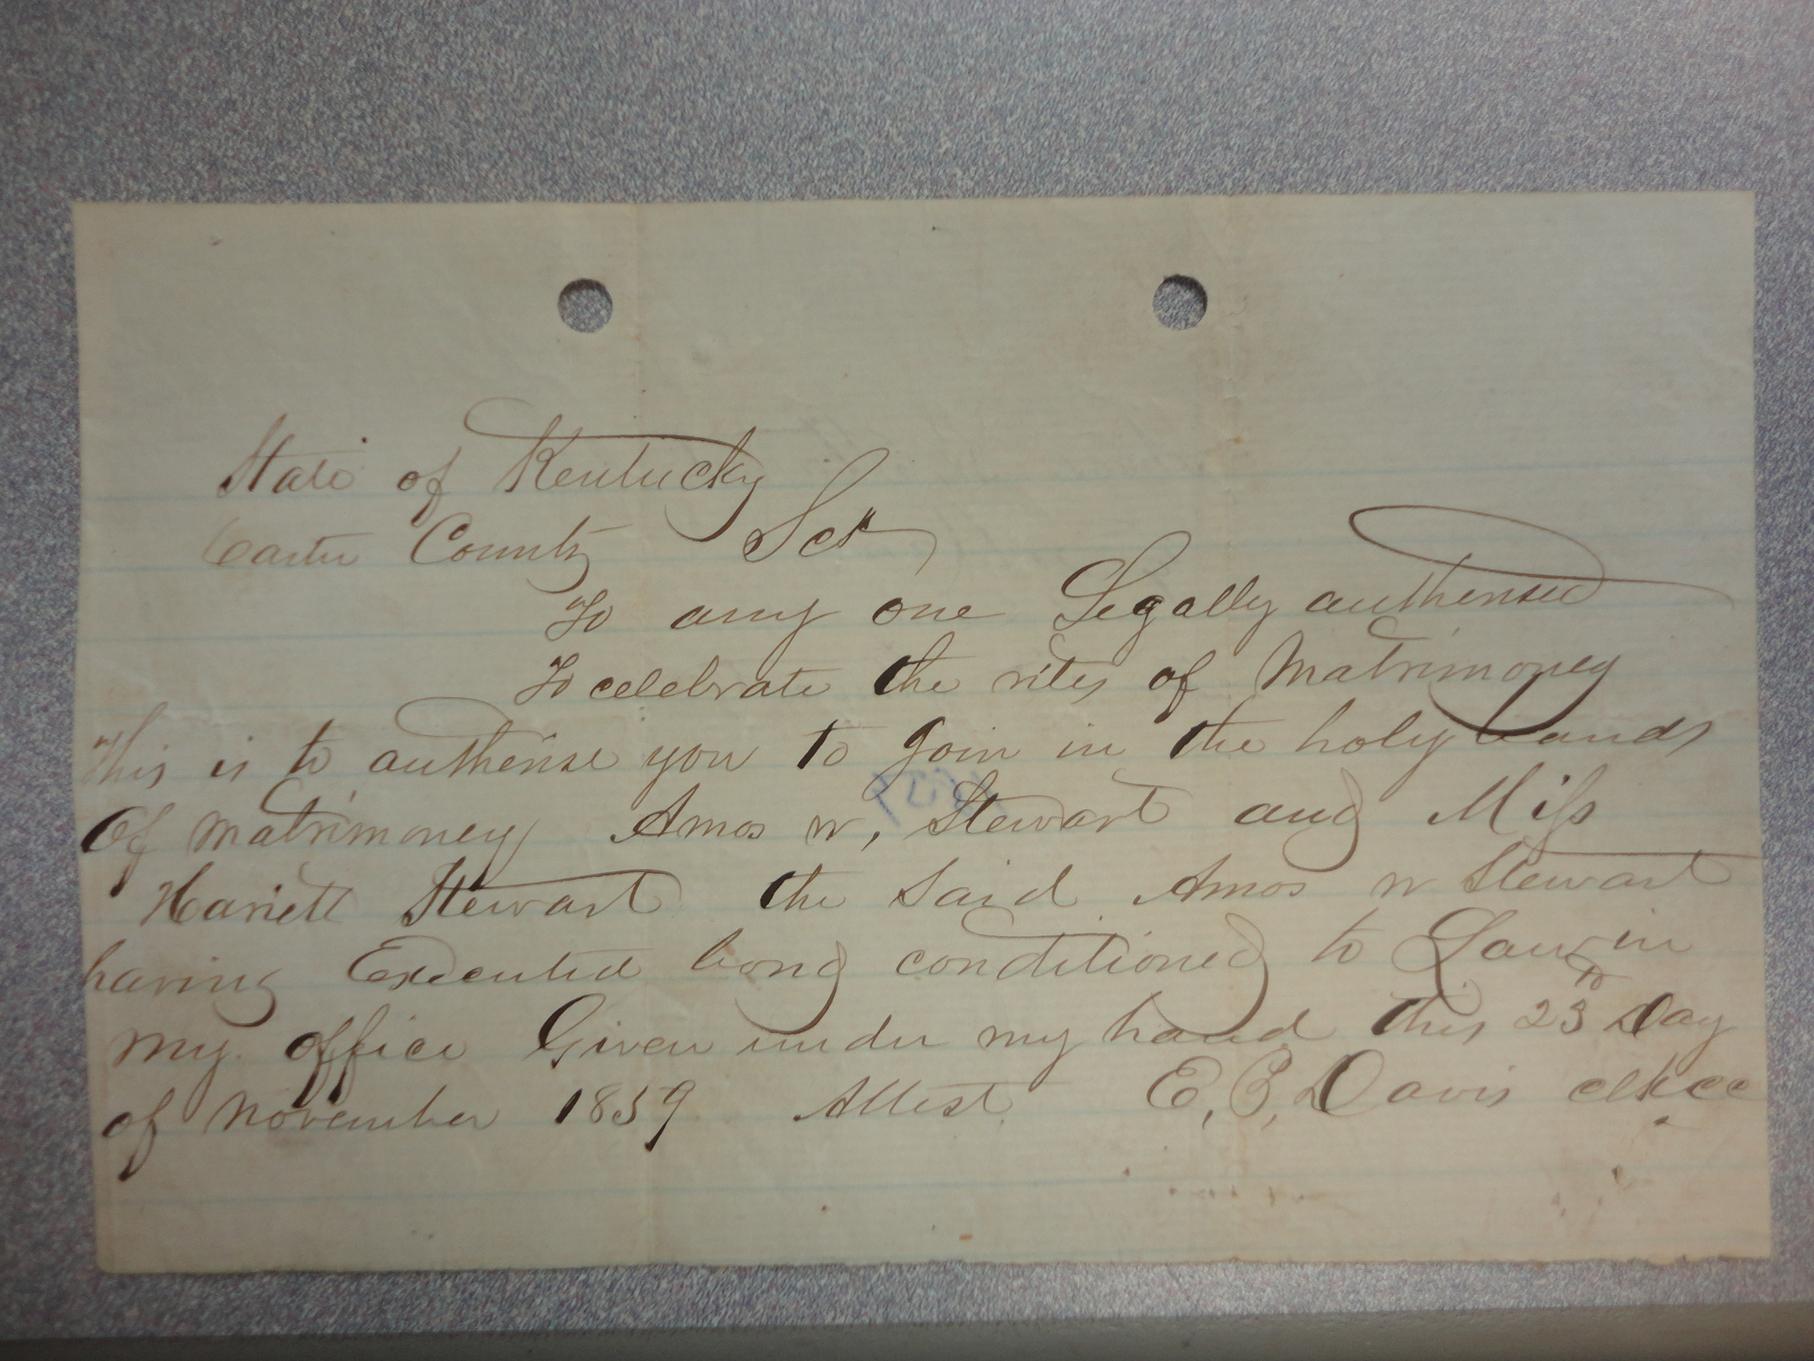 State of Kentucky
Carter County Sct
To any one Legally authorised
To celebrate the rites of Matrimoney
This is to authorise you to Join in the holy bands
Of Matrimoney Amos W, Stewart and Miss
Hariett Stewart the said Amos W Stewart
having Executed bond conditioned to Law in
my office Given under my hand this 23rd Day
of November 1859 Attest E, B, Davis clkcc